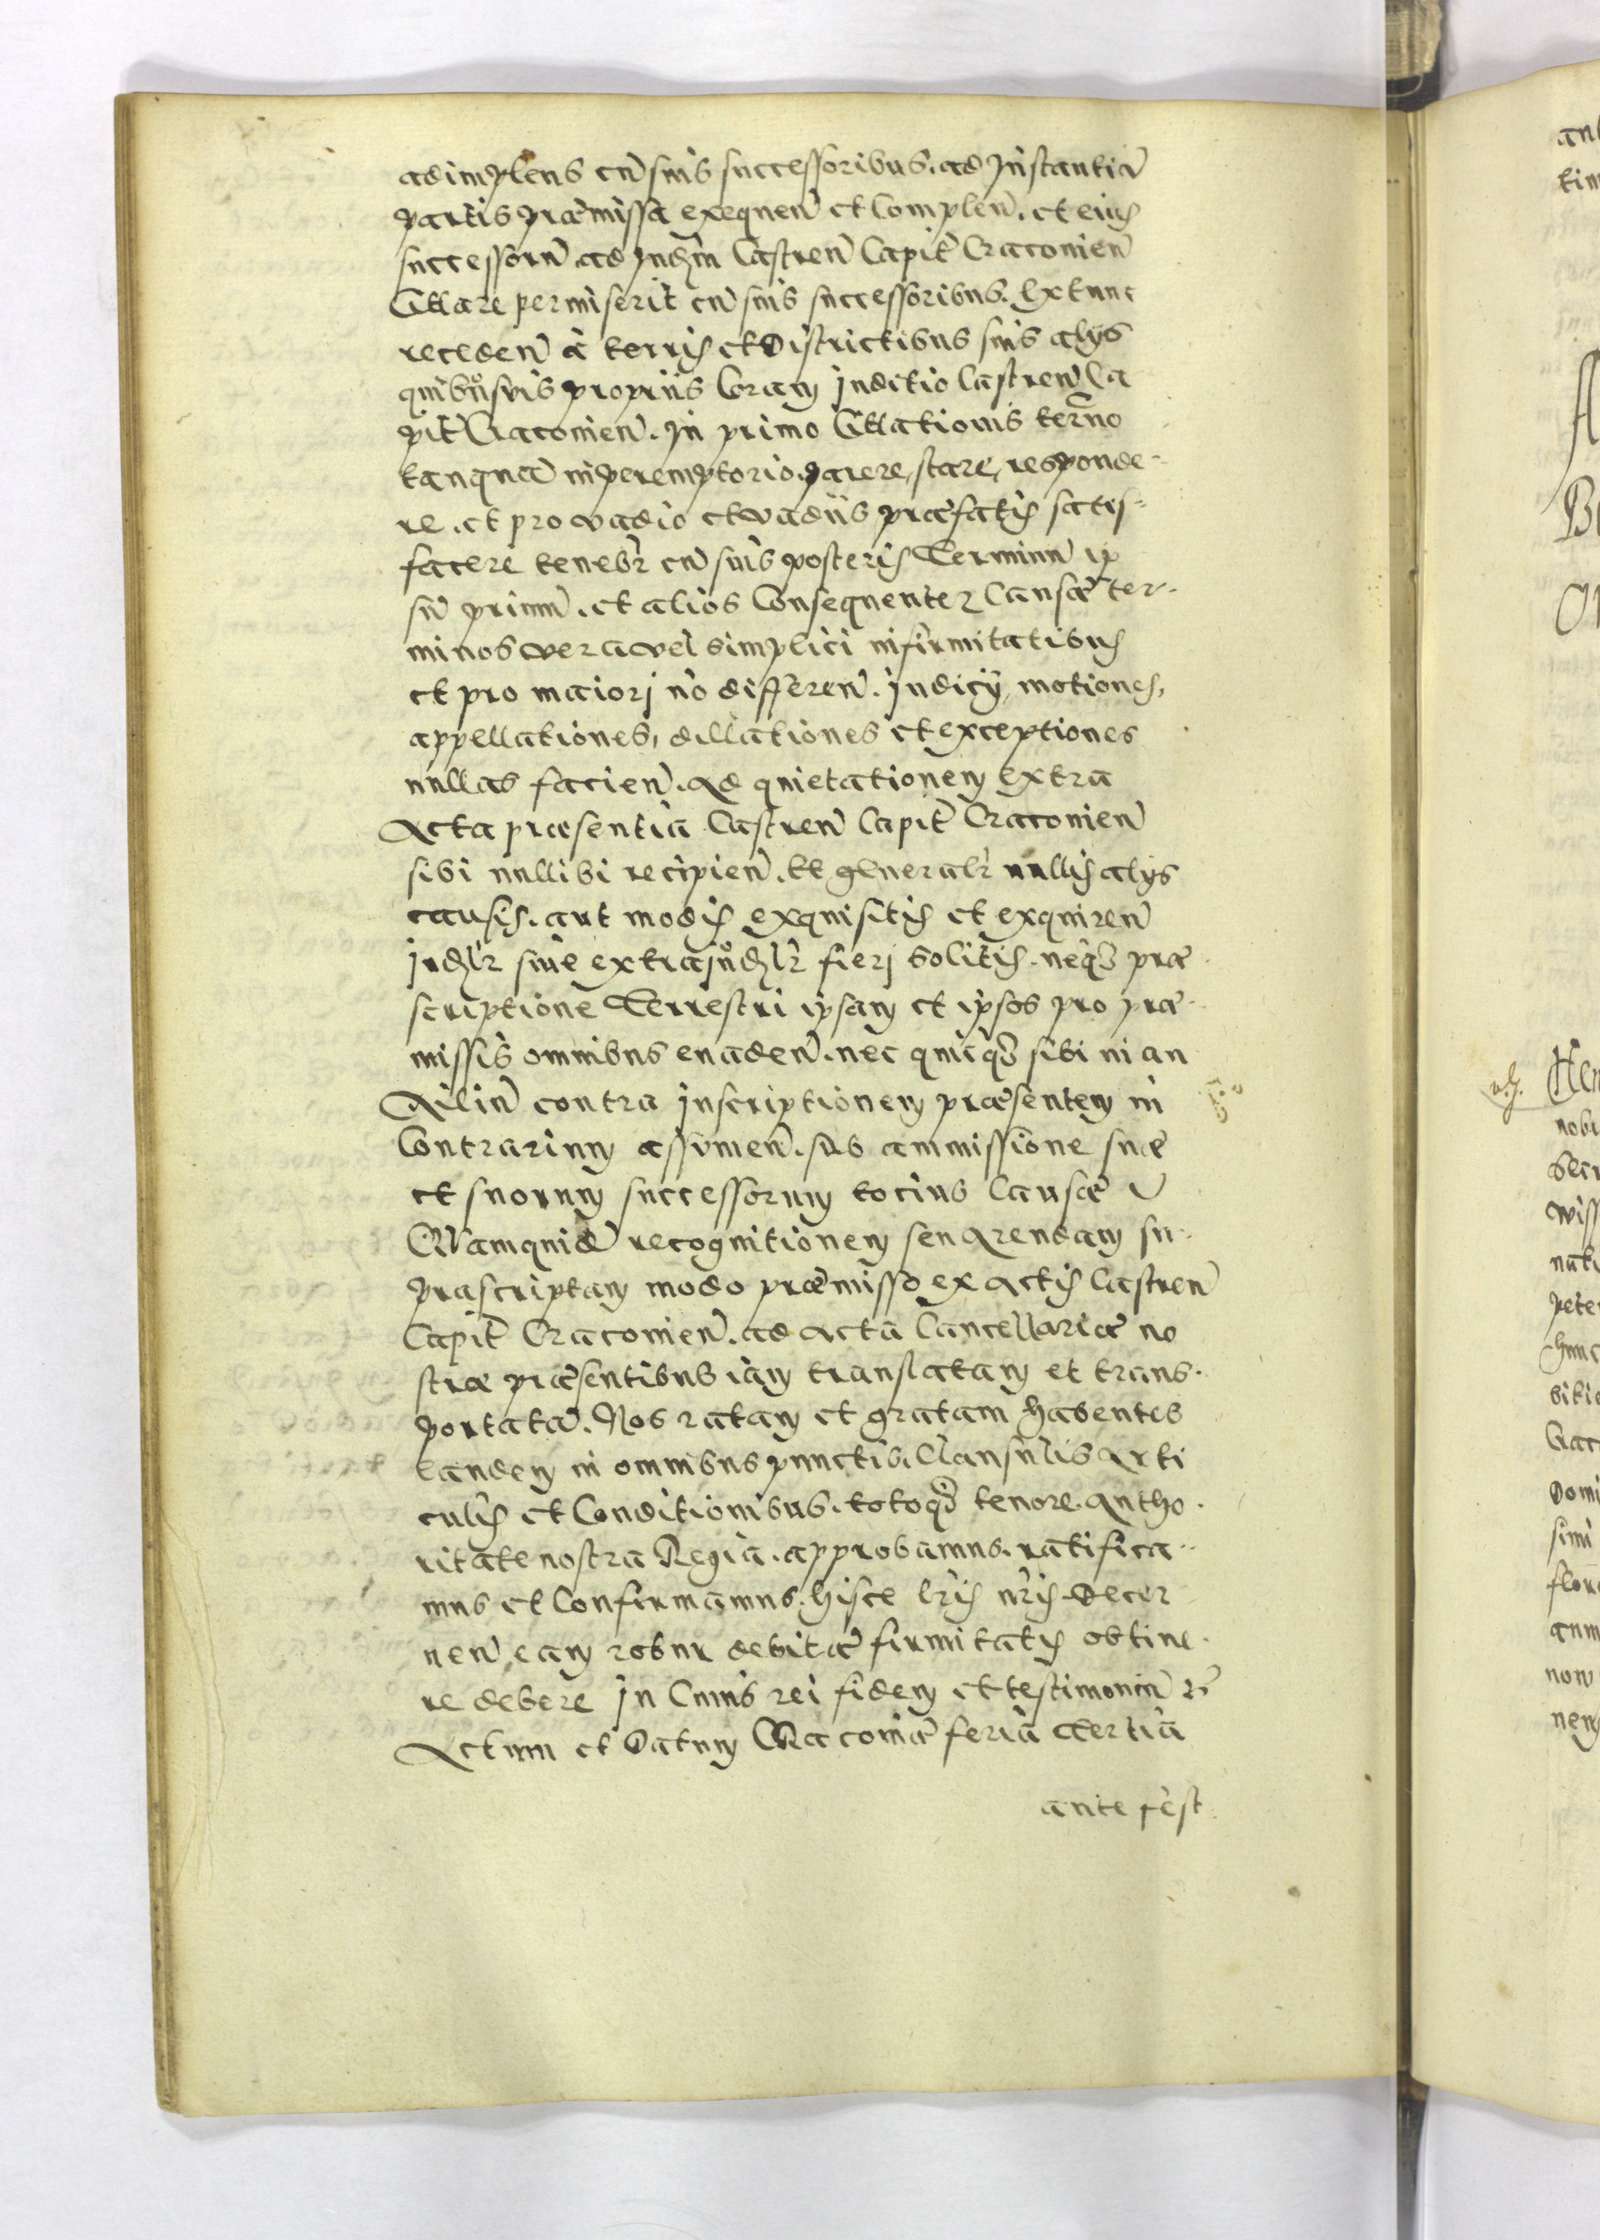 adimplens cū suis successoribus. ad Instantiā
partis præmissa exequeñ et Compleñ. et eius
successorū ad Iudm̄ Castreñ Capit̄ Cracovieñ
Cittare permiserit cū suis successoribus. Extunc
recedeñ à terris et Districtibus suis alys
quibusvis propriis Coram Iuditio Castreñ Ca
pit̄ Cracovieñ. In primo Cittationis termō
tanquā in peremptorio, parere, stare, responde-
re. et pro vadio et vadiis præfatis satis=
facere teneb̄r cū suis posteris Terminū ip
sū primū. et alios Consequenter Causæ ter-
minos vera vel simplici infirmitatibus
et pro maiori nō differeñ. Iudicy, motiones,
appellationes, dillationes et exceptiones
nullas facieñ. Ad quietationem Extra
Acta præsentia Castreñ Capit̄ Cracovieñ
sibi nullibi recipieñ. Et generalr̄ nullis alys
causis. aut modis exquisitis et exquireñ
Iudlr̄ sive extraiudlr̄ fieri solitis. neq3 præ
scriptione Terrestri ipsam et ipsos pro præ-
missis omnibus evadeñ. nec quicq3 sibi in au
xiliū contra Inscriptionem præsentem in
Contrarium assumeñ. sub ammissione suæ
et suorum successorum tocius Causæ
Quamquidē recognitionem seu Arendam su-
prascriptam modo præmisso ex Actis Castreñ
Capit̄ Cracovieñ. ad Acta Cancellariæ no
stræ præsentibus iam translatam et trans-
portatā. Nos ratam et gratam habentes
Eandem in omnibus punctis. Clausulis Arti
culis et Conditionibus. totoq3 tenore. Autho-
ritate nostra Regia. approbamus. ratifica-
mus et Confirmamus. hisce lr̄is nr̄is. Decer
neñ eam robur debitæ firmitatis obtine-
re debere In Cuius rei fidem et testimoniū
Actum et Datum Cracoviæ feria tertia
ante fest